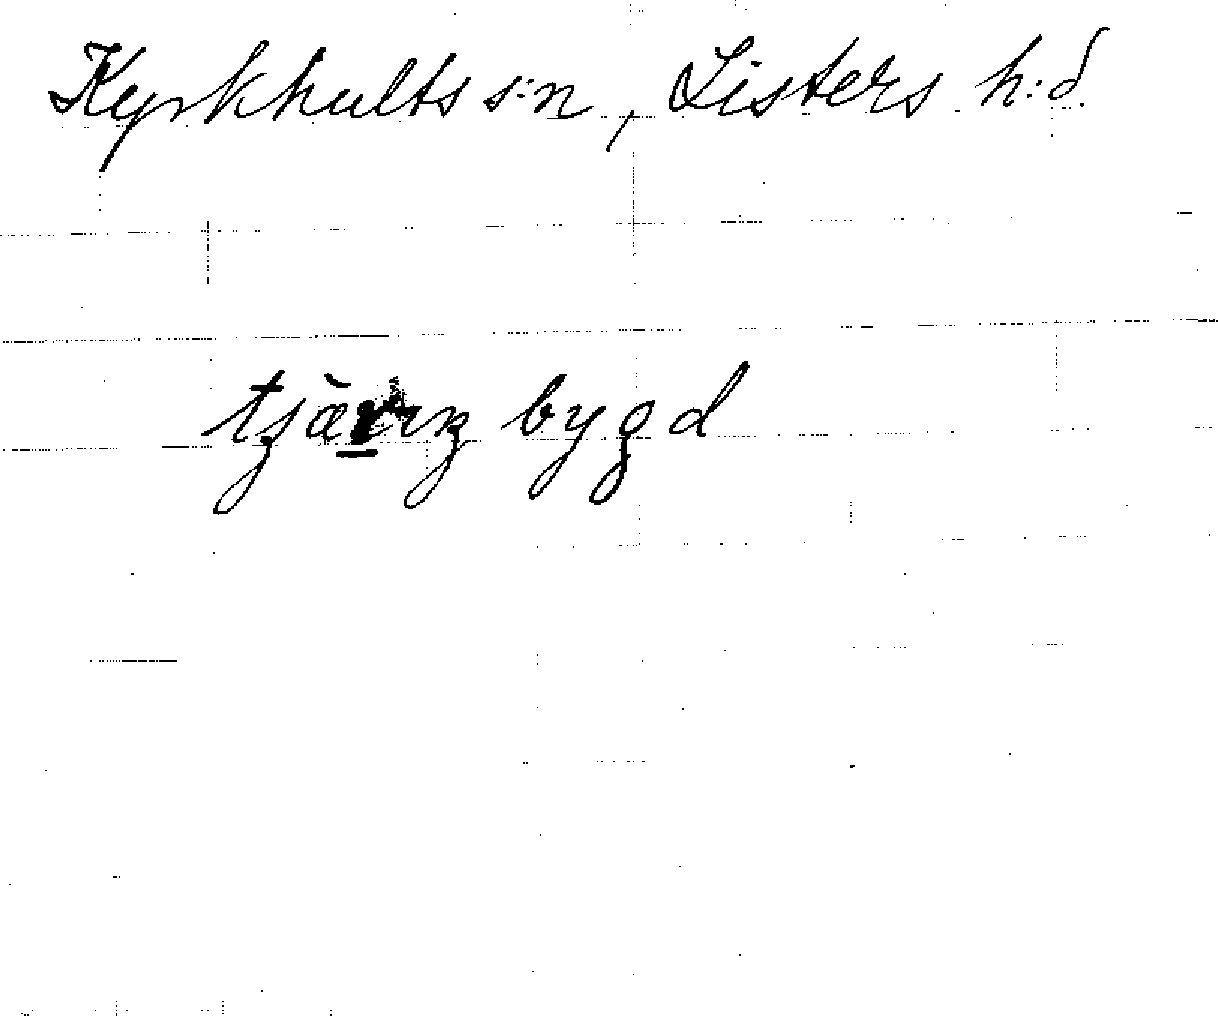 Kyrkhults s:n, Listers h:d.
bygd